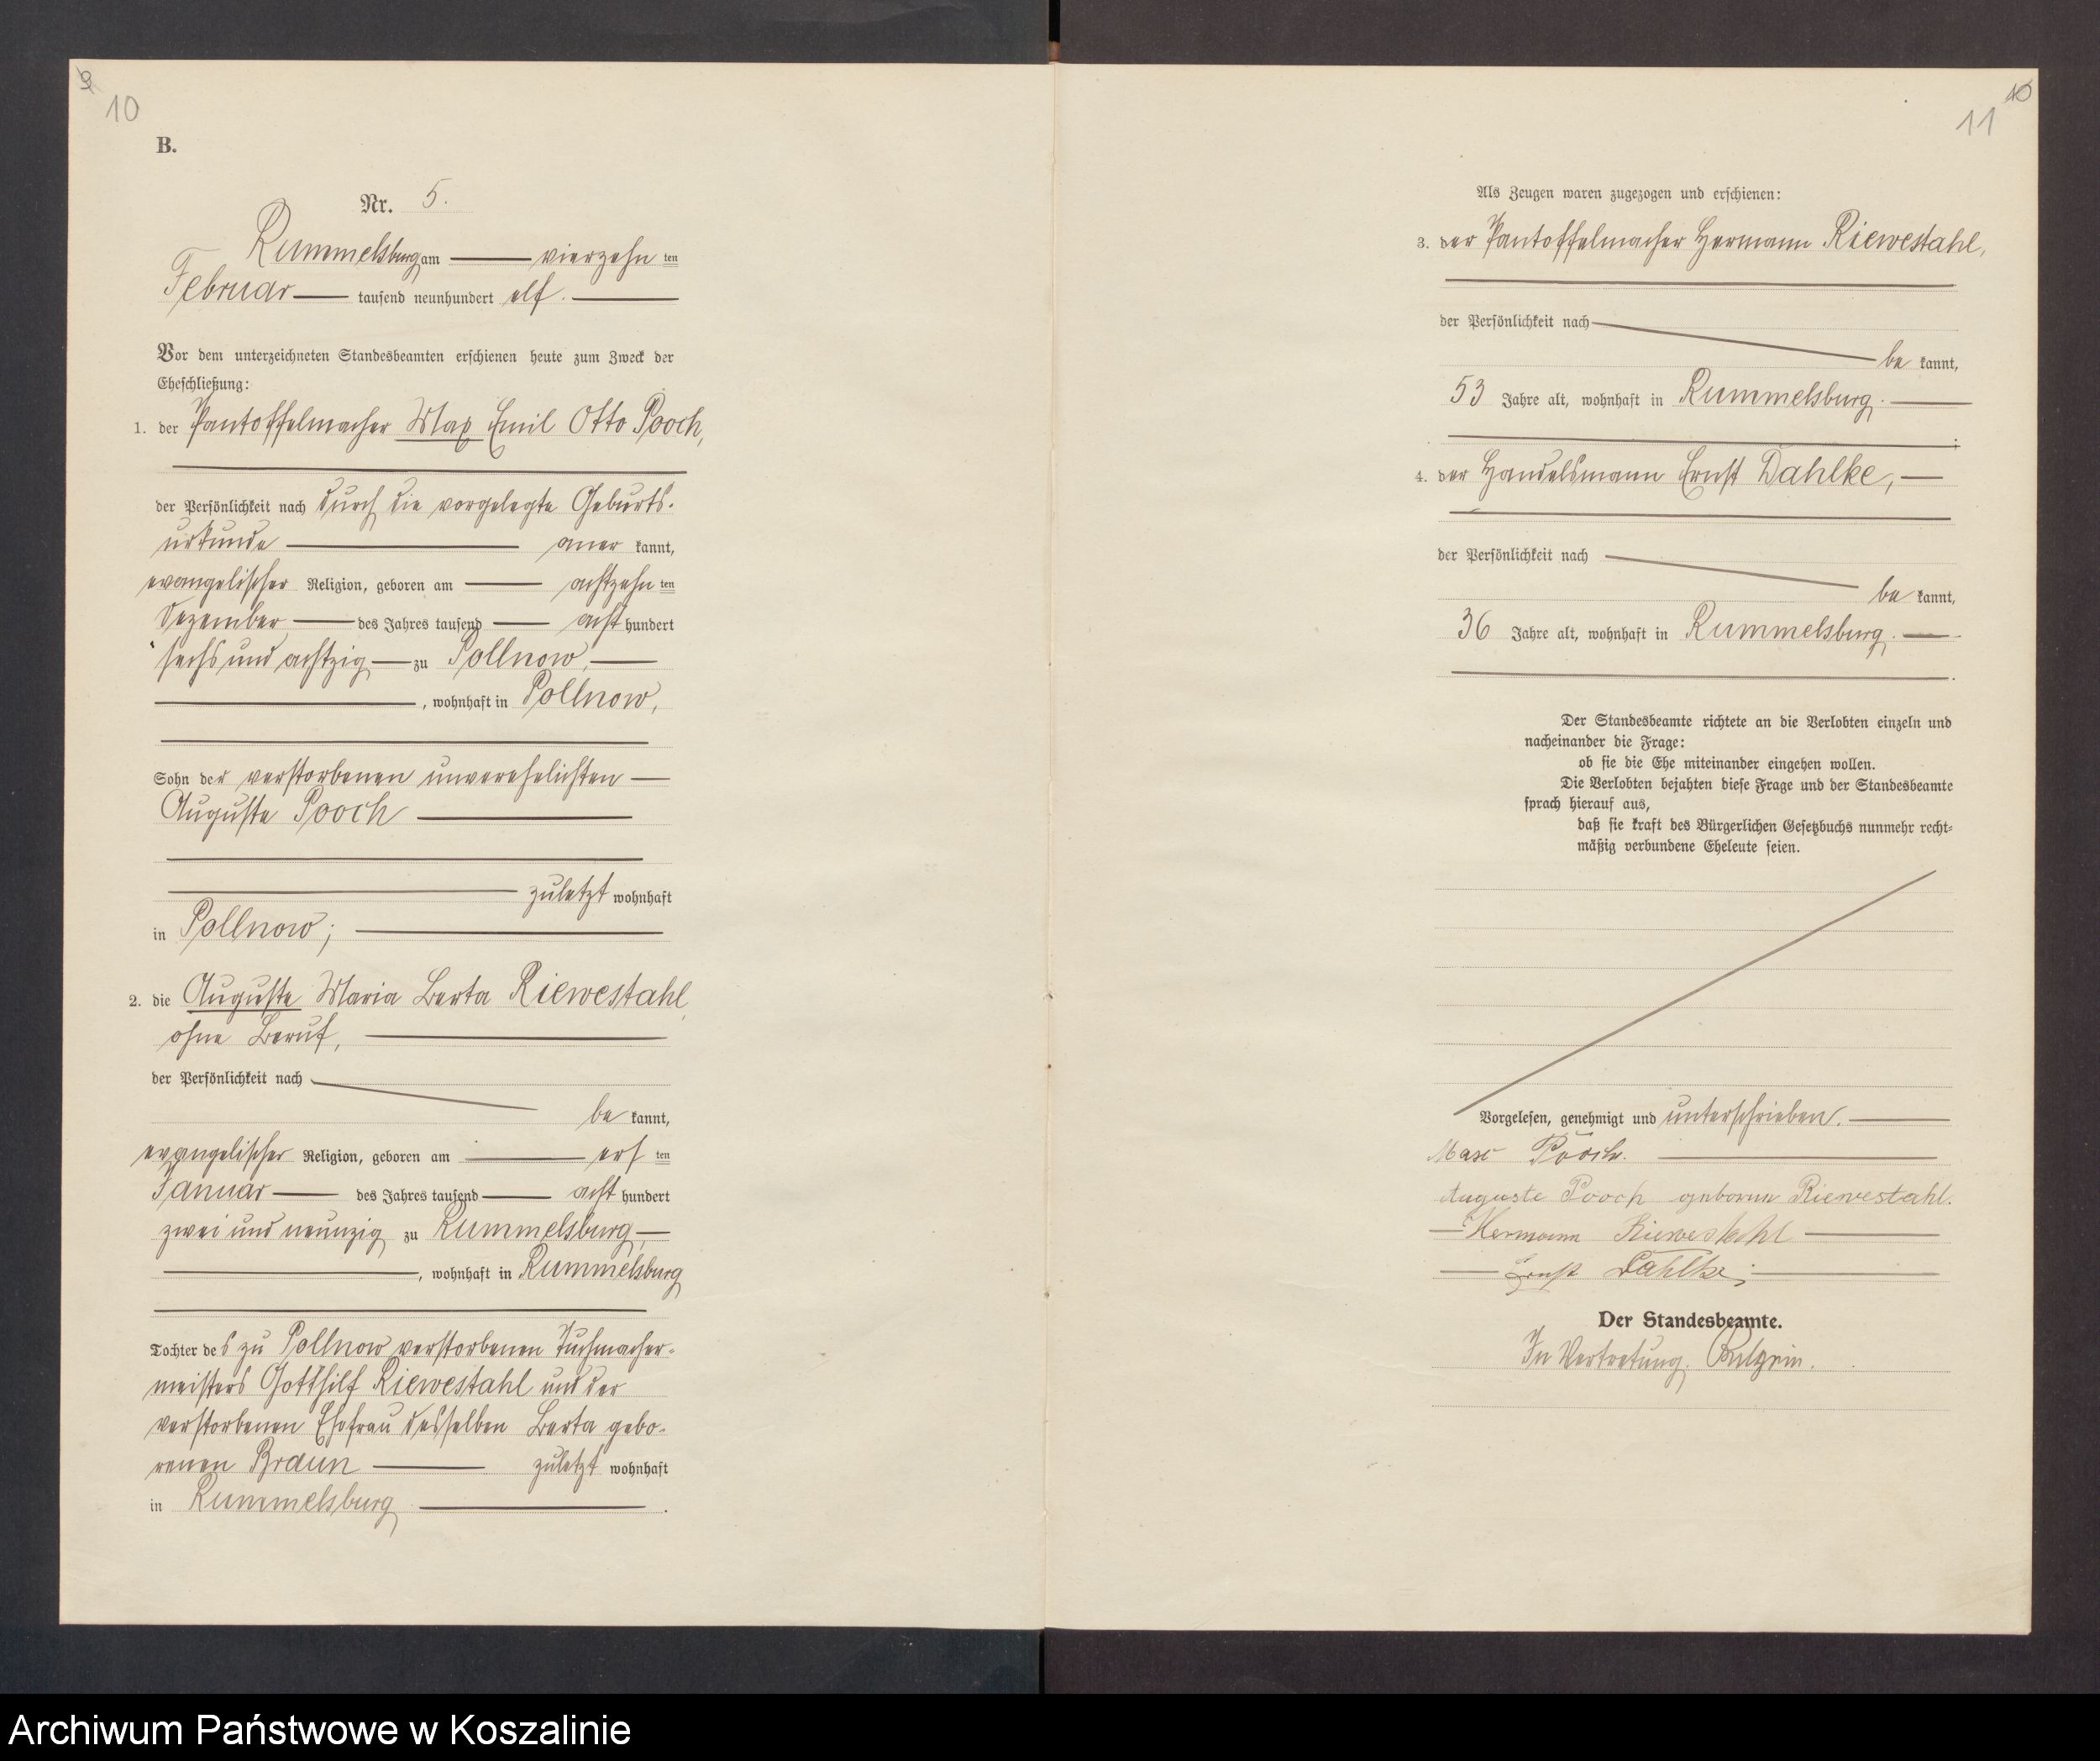 9
10
B.
Nr. 5.
Rummelsburg am vierzehn ten
Februar tausend neunhundert elf.
Vor dem unterzeichneten Standesbeamten erschienen heute zum Zweck der
Eheschließung:
1. der Pantoffelmacher Max Emil Otto Pooch,
der Persönlichkeit nach durch die vorgelegte Geburts-
urkunde aner kannt,
evangelischer Religion, geboren am achtzehn ten
Dezember des Jahres tausend acht hundert
sechs und achtzig zu Pollnow,
, wohnhaft in Pollnow,
Sohn der verstorbenen unverehelichten
Auguste Pooch
zuletzt wohnhaft
in Pollnow;
2. die Auguste Maria Berta Riewestahl,
ohne Beruf,
der Persönlichkeit nach
be kannt,
evangelischer Religion, geboren am ers ten
Januar des Jahres tausend acht hundert
zwei und neunzig zu Rummelsburg,
, wohnhaft in Rummelsburg
Tochter des zu Pollnow verstorbenen Tuchmacher-
meisters Gotthilf Riewestahl und der
verstorbenen Ehefrau desselben Berta gebo-
renen Braun zuletzt wohnhaft
in Rummelsburg.
10
11
Als Zeugen waren zugezogen und erschienen:
3. der Pantoffelmacher Hermann Riewestahl,
der Persönlichkeit nach
be kannt,
53 Jahre alt, wohnhaft in Rummelsburg.
4. der Handelsmann Ernst Dahlke,
der Persönlichkeit nach
be kannt,
36 Jahre alt, wohnhaft in Rummelsburg.
Der Standesbeamte richtete an die Verlobten einzeln und
nacheinander die Frage:
ob sie die Ehe miteinander eingehen wollen.
Die Verlobten bejahten diese Frage und der Standesbeamte
sprach hierauf aus,
daß sie kraft des Bürgerlichen Gesetzbuchs nunmehr recht-
mäßig verbundene Eheleute seien.
Vorgelesen, genehmigt und unterschrieben.
Max Pooch.
Auguste Pooch geborene Riewestahl.
Hermann Riewestahl
Ernst Dahlke;
Der Standesbeamte.
In Vertretung.
Archiwum Państwowe w Koszalinie